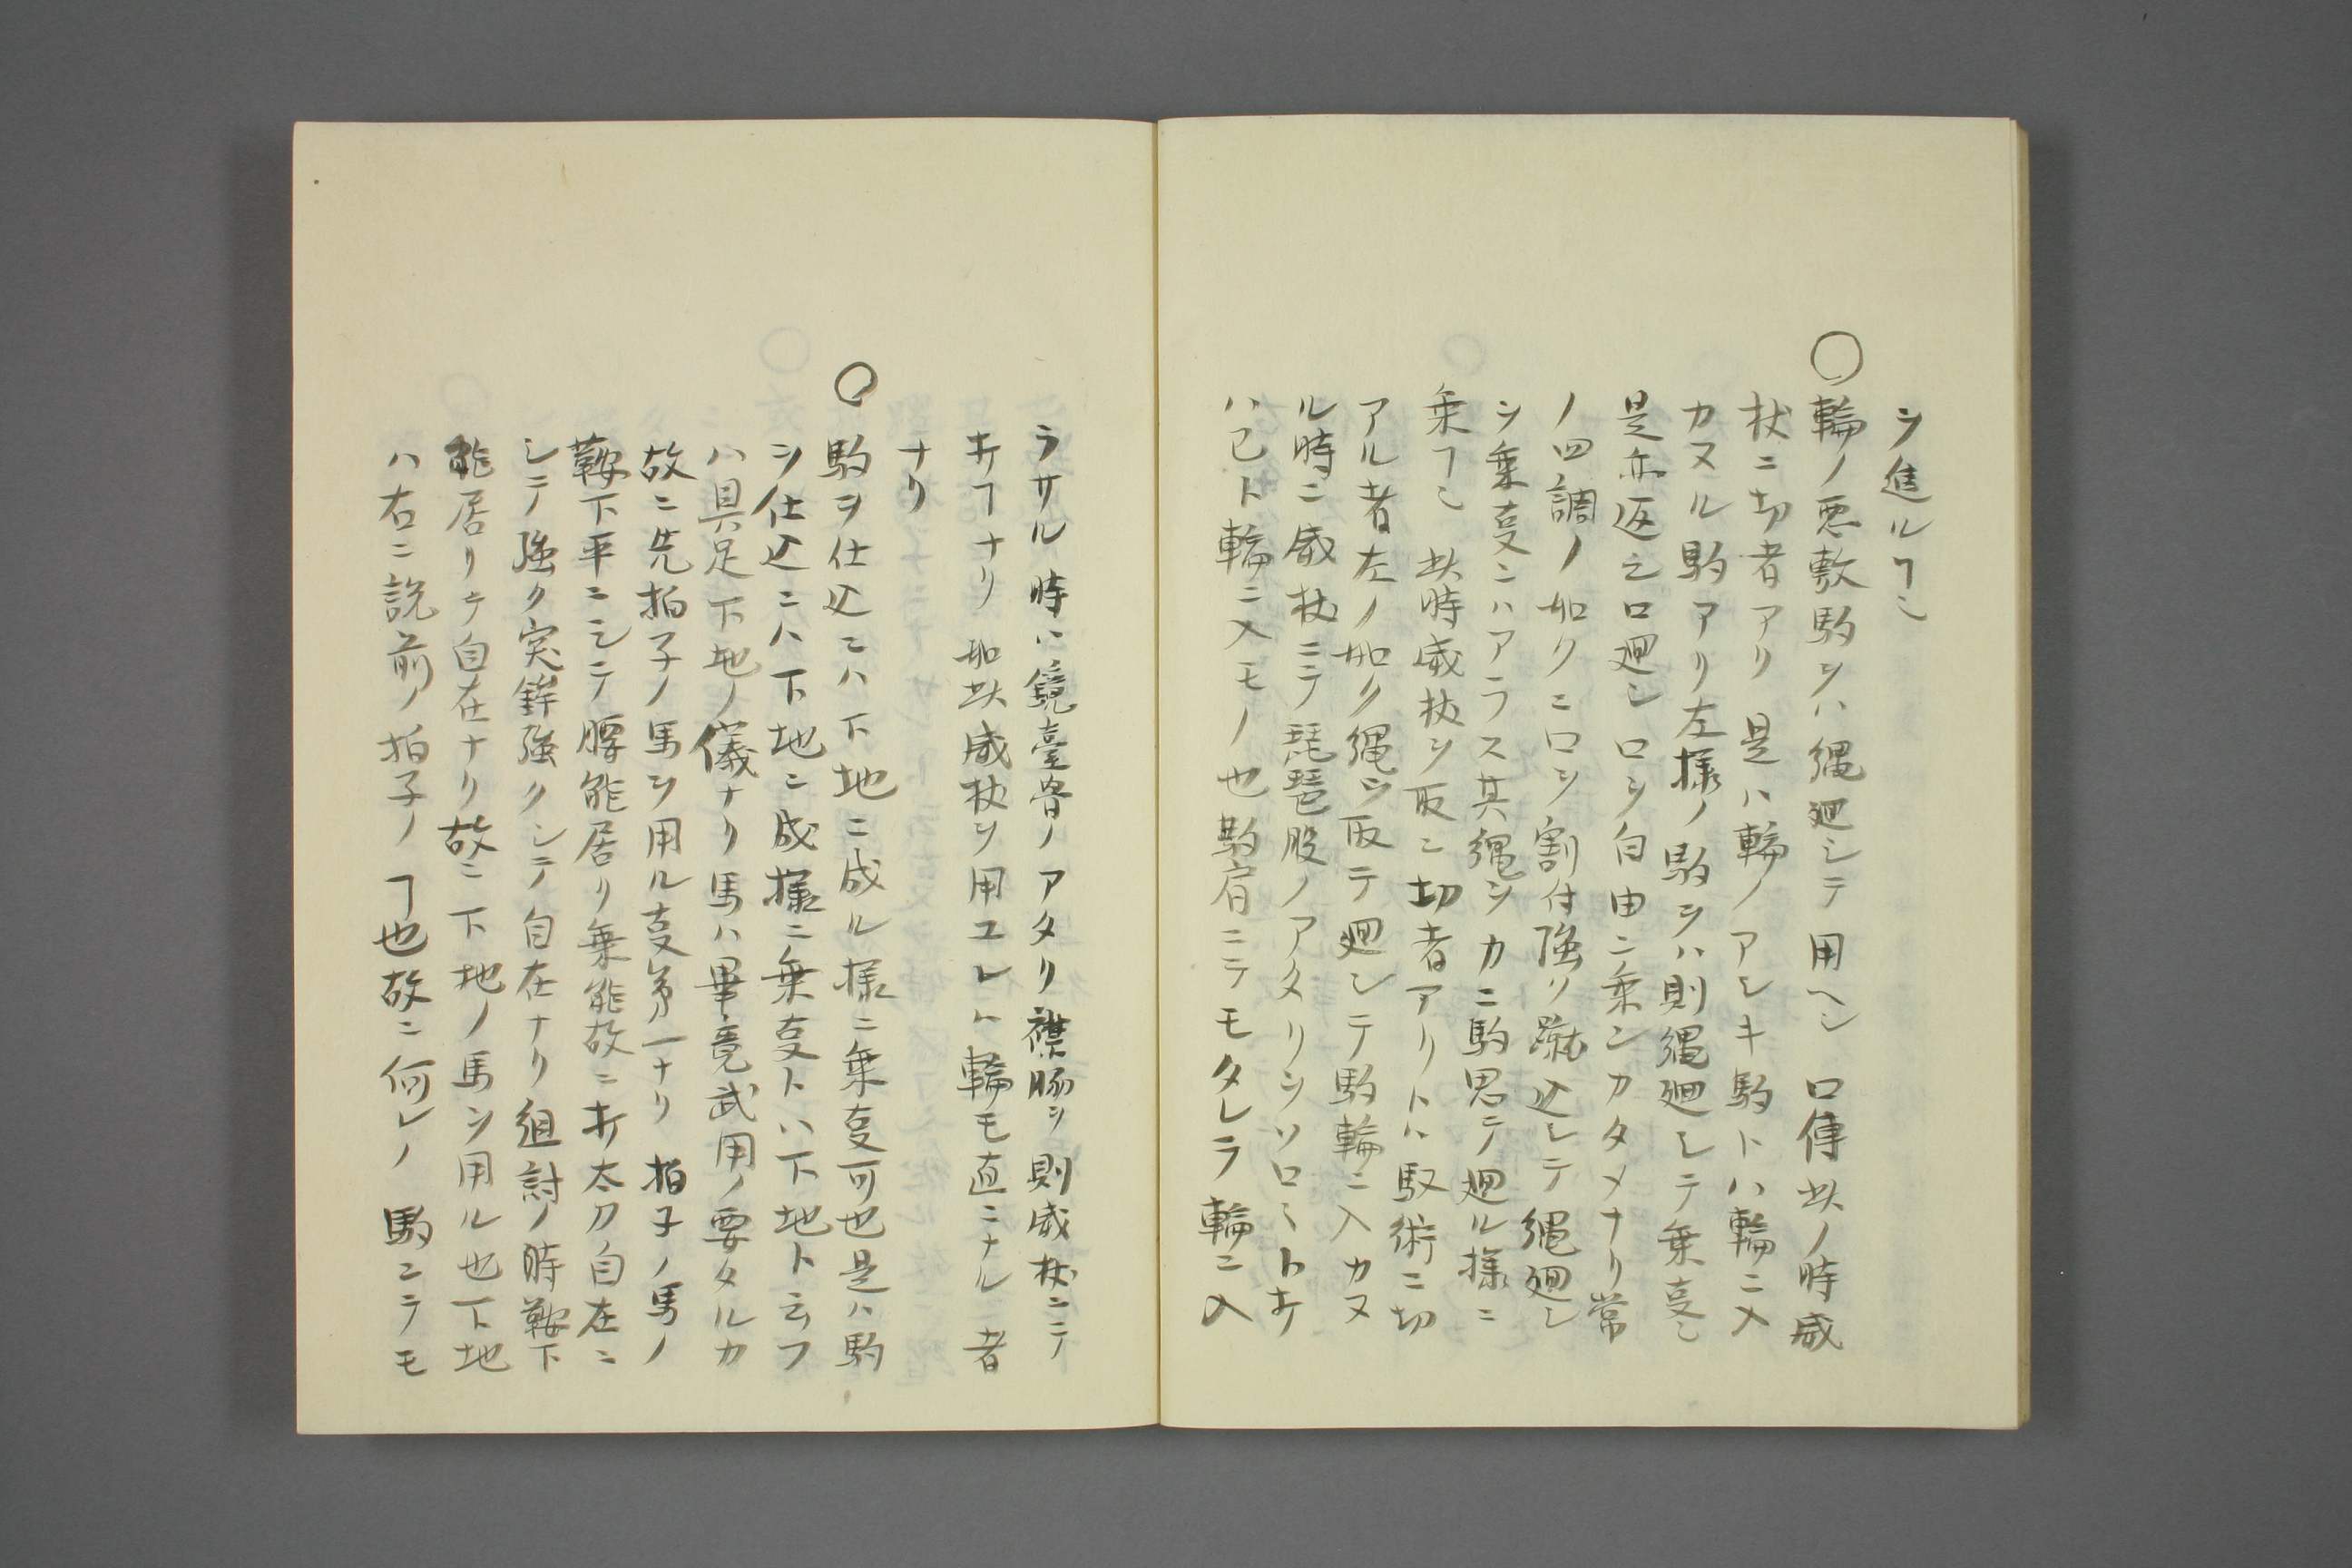 ヲ進ルヿ也
○輪ノ悪敷駒ヲハ縄廻シテ用ヘシ口傳此ノ時威
杖ニ切者アリ是ハ輪ノアシキ駒トハ輪ニ入
カヌル駒アリ左様ノ駒ヲハ則縄廻シテ乗叓也
是亦返シ口廻シ口ヲ自由ニ乗ンカタメナリ常
ノ四調ノ如クニ口ヲ割付強ク蹴込シテ縄廻シ
ヲ乗叓ニハアラス其縄ヲカニ駒思テ廻ル様ニ
乗ヿ也此時威杖ヲ取ニ切者アリトハ馭術ニ切
アル者左ノ如ク縄ヲ取テ廻シテ駒輪ニ入カヌ
ル時ニ威杖ニテ琵琶股ノアタリヲソロミトオ
ハ已ト輪ニ入モノ也駒肩ニテモタレラ輪ニ入
ラサル時ハ鏡臺骨ノアタリ襟豚ヲ則威杖ニテ
オフナリ如此威杖ヲ用ユレハ輪モ直ニナル者
ナリ
○駒ヲ仕込ニハ下地ニ成ル様ニ乗叓可也是ハ駒
ヲ仕込ニハ下地ニ成様ニ乗叓トハ下地ト云フ
ハ具足下地ノ儀ナリ馬ハ畢竟武用ノ要タルカ
故ニ先拍子ノ馬ヲ用ル叓第一ナリ拍子ノ馬ノ
鞍下平ニシテ腰能居リ乗能故ニ打太刀自在ニ
シテ強ク突鋒強クシテ自在ナリ組討ノ時鞍下
能居リテ自在ナリ故ニ下地ノ馬ヲ用ル也下地
ハ右ニ説前ノ拍子ノヿ也故ニ何レノ駒ニテモ